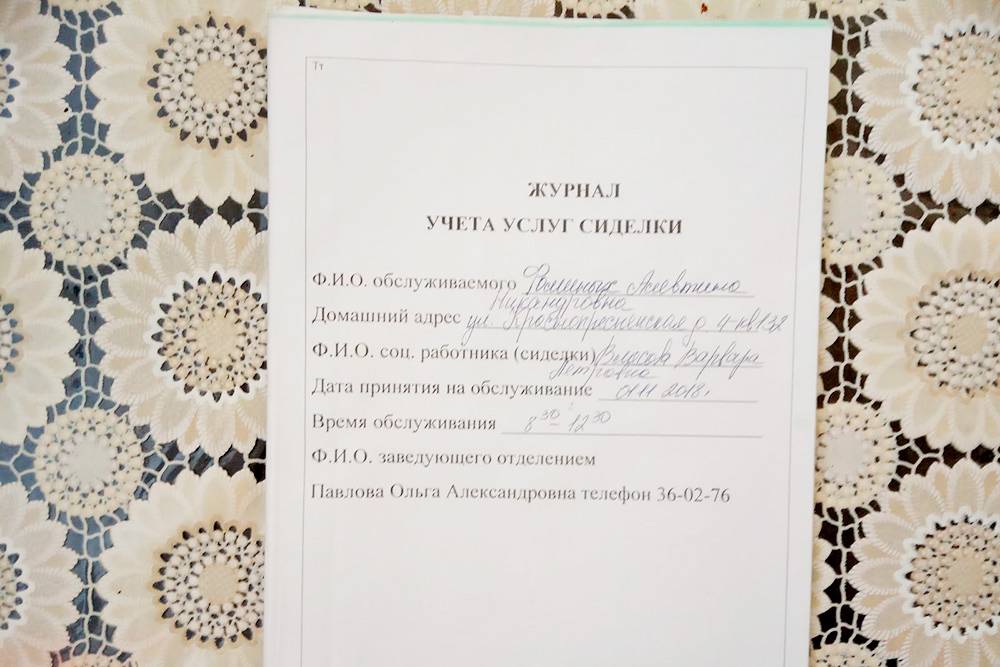 Тт
ЖУРНАЛ
УЧЕТА УСЛУГ СИДЕЛКИ
Ф.И.О. обслуживаемого Фоминых Алевтина
Никандровна
Домашний адрес ул. Краснопресненская д 4-кв 132
Ф.И.О. соц. работника (сиделки) Власова Варвара
Петровна
Дата принятия на обслуживание 01.11 2018г
Время обслуживания 8 30 - 12 30
Ф.И.О. заведующего отделением
Павлова Ольга Александровна телефон 36-02-76